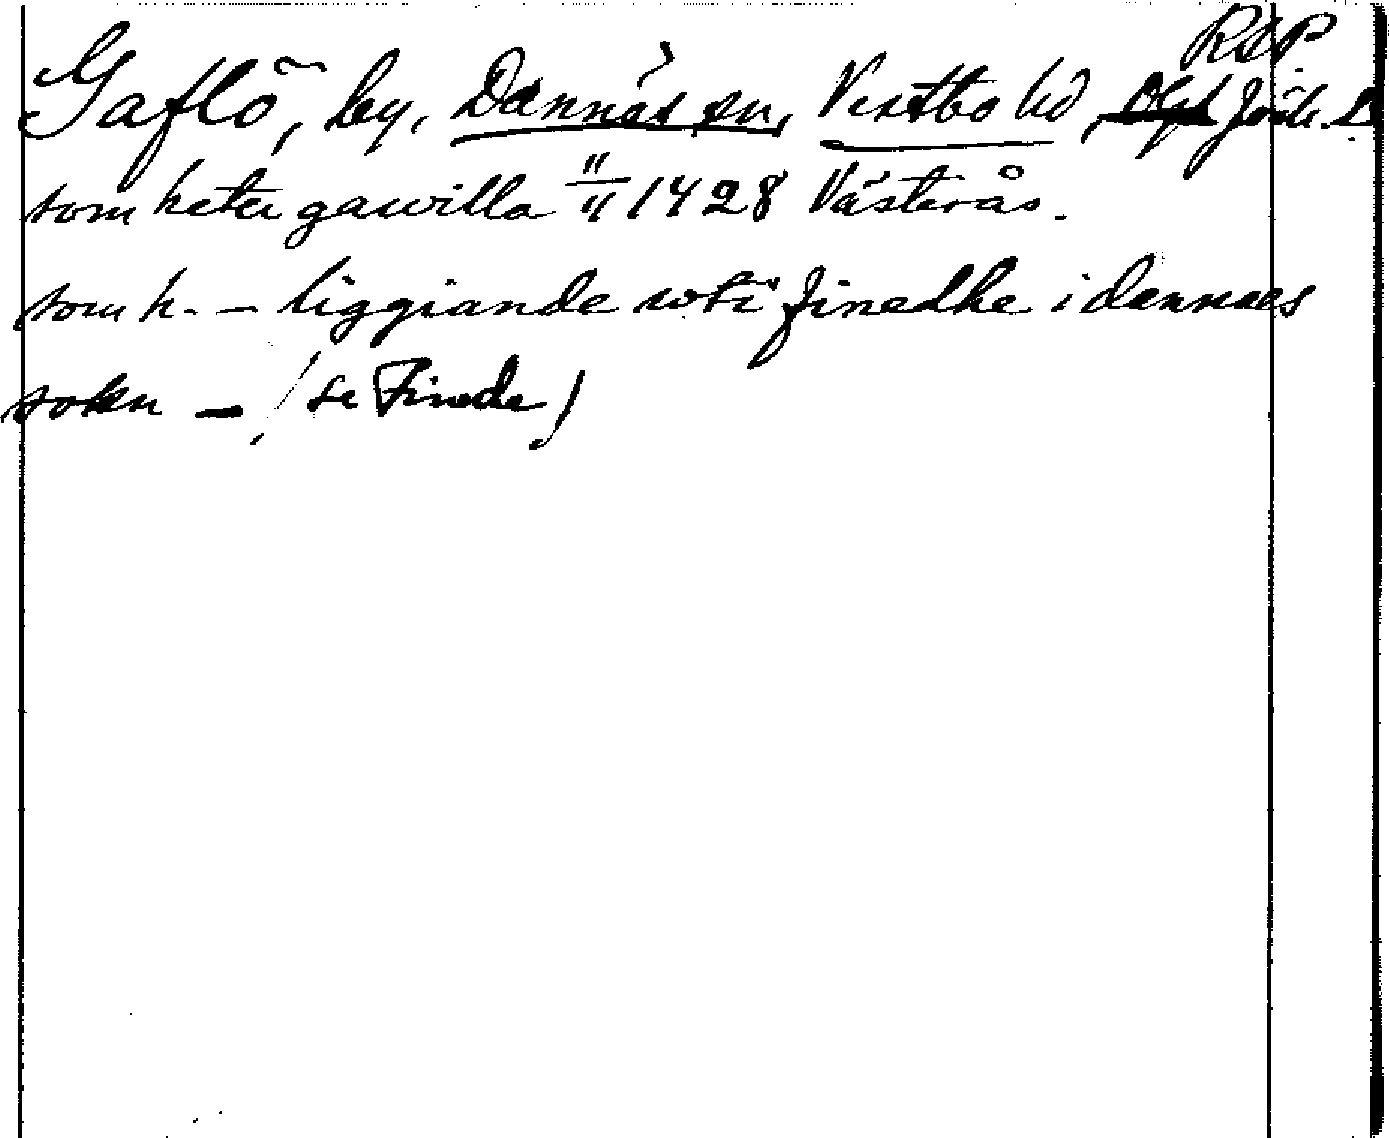 RAP
Gaflö, by, Dannäs sn, Vestbo hd, Jönk. L
som heter gauvilla 11/11 1428 Västerås.
som h. – liggiande wti finedhe i dannaes
sokn – (se Finede)